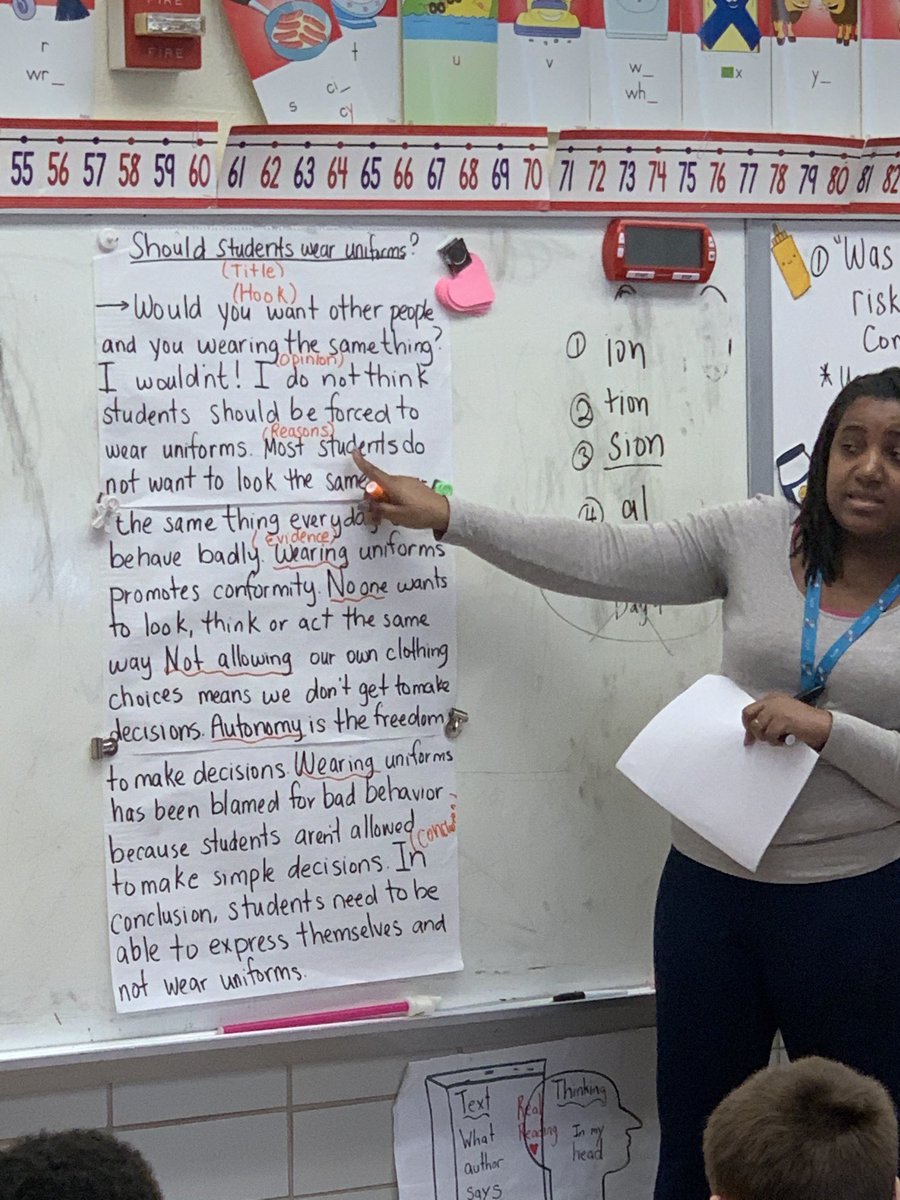 FIRE
FIRE
r
wr_
t
ci_
s
cy
u
v
w_
wh_
x
y_
55 56 57 58 59 60
61 62 63 64 65 66 67 68 69 70
71 72 73 74 75 76 77 78 79 80
81 82
Should students wear uniforms?
(Title)
(Hook)
→Would you want other people
and you wearing the same thing?
(Opinion)
I would'nt! I do not think
students should be forced to
(Reasons)
wear uniforms. Most students do
not want to look the same
the same thing everyday
(Evidence)
behave badly. Wearing uniforms
promotes conformity. No one wants
to look, think or act the same
way Not allowing our own clothing
choices means we don't get to make
decisions. Autonomy is the freedom
to make decisions. Wearing uniforms
has been blamed for bad behavior
because students aren't allowed
(Conclusion)
to make simple decisions. In
conclusion, students need to be
able to express themselves and
not wear uniforms.
① ion
② tion
③ sion
④ al
Day 1
① "Was
risk
Con
Text
What
author
says
Real
Reading
Thinking
In my
head